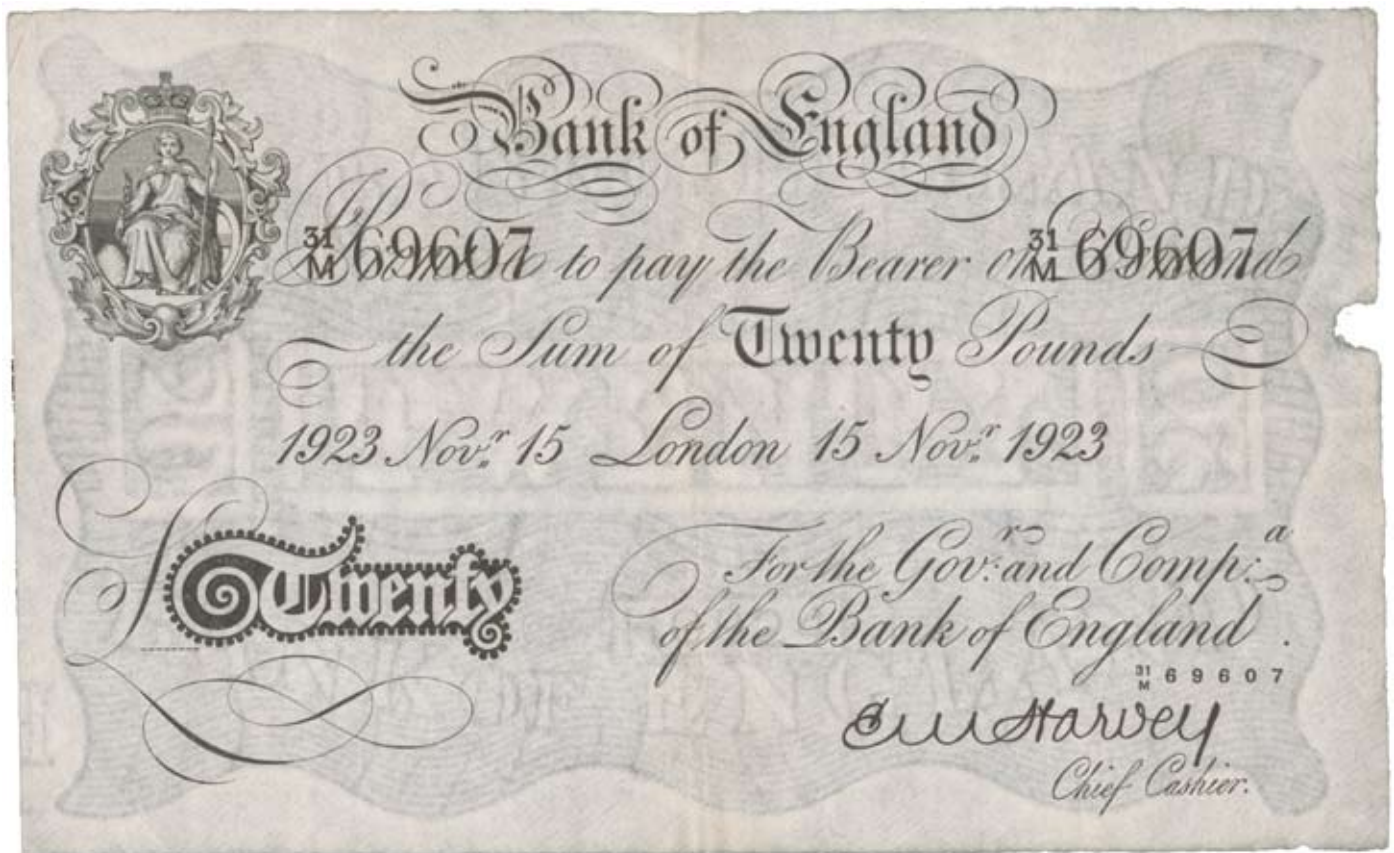 Bank of England
31/M 69607 to pay the Bearer on 31/M 69607
the Sum of Twenty Pounds
1923 Nov.r 15 London 15 Nov.r 1923
Twenty
For the Gov.r and Comp.a
of the Bank of England.
31/M 69607
Harvey
Chief Cashier.